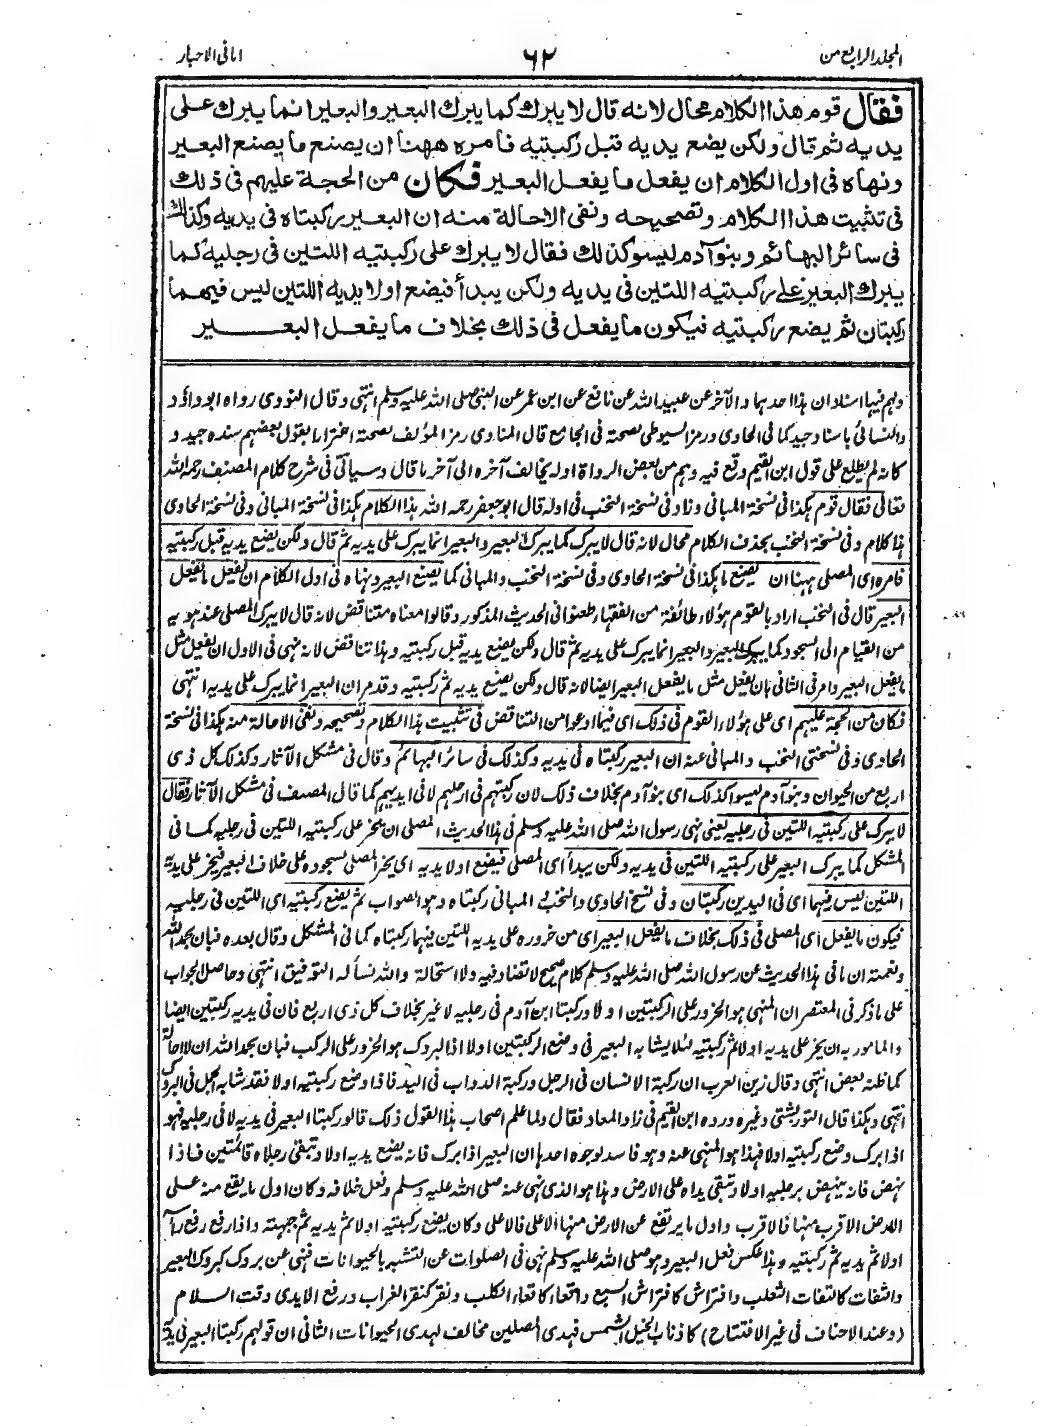 المجلد الرابع من
٦٢
امانی الاحبار
فقال قوم هذا الكلام محال لانه قال لا يبرك كما يبرك البعير والبعير انما يبرك على
يديه ثم قال ولكن يضع يديه قبل ركبتيه فامره ههنا ان يصنع ما يصنع البعير
ونهاه فى اول الكلام ان يفعل ما يفعل البعير فكان من الحجة عليهم فى ذلك
فى تثبيت هذا الكلام وتصحيحه ونفى الاحالة منه ان البعير ركبتاه فى يديه وكذلك
فى سائر البهائم وبنو آدم ليسو كذلك فقال لا يبرك على ركبتيه اللتين فى رجليه كما
يبرك البعير على ركبتيه اللتين فى يديه ولكن يبدأ فيضع اولا يديه اللتين ليس فيهما
ركبتان ثم يضع ركبتيه فيكون ما يفعل فى ذلك بخلاف ما يفعل البعير
ولهم فيها اسنادان هذا احدهما والآخر عن عبيد الله عن نافع عن ابن عمر عن النبى صلى الله عليه وسلم انتهى وقال النووى رواه ابو داؤد
والنسائى باسناد جيد كما فى الحاوى ورمز السيوطى لصحته فى الجامع قال المناوى رمز المؤلف لصحته اغترارا بقول بعضهم سنده جيد و
كانه لم يطلع على قول ابن القيم وقع فيه وهم من بعض الرواة اوله يخالف آخره الى آخر ما قال وسيأتى فى شرح كلام المصنف رحمه الله
تعالى فقال قوم هكذا فى نسخة المبانى وزاد فى نسخة النخب فى اوله قال ابو جعفر رحمه الله هذا الكلام هكذا فى نسخة المبانى وفى نسخة الحاوى
هذا كلام وفى نسخة النخب بحذف الكلام محال لانه قال لا يبرك كما يبرك البعير والبعير انما يبرك على يديه ثم قال ولكن يضع يديه قبل ركبتيه
فامره اى المصلى ههنا ان يصنع ما هكذا فى نسخة الحاوى وفى نسخة النخب والمبانى كما يصنع البعير ونهاه فى اول الكلام ان يفعل ما يفعل
البعير قال فى النخب اراد بالقوم هؤلاء طائفة من الفقهاء طعنوا فى الحديث المذكور وقالوا معناه متناقض لانه قال لا يبرك المصلى عند هويه
من القيام الى السجود كما يبرك البعير والبعير انما يبرك على يديه ثم قال ولكن يضع يديه قبل ركبتيه وهذا تناقض لانه نهى فى الاول ان يفعل مثل
ما يفعل البعير وامر فى الثانى بان يفعل مثل ما يفعل البعير ايضا لانه قال ولكن يضع يديه ثم ركبتيه وقدم ان البعير انما يبرك على يديه انتهى
فكان من الحجة عليهم اى على هؤلاء القوم فى ذلك اى فيما ادعوا من التناقض فى تثبيت هذا الكلام وتصحيحه ونفى الاحالة منه هكذا فى نسخة
الحاوى وفى نسختى النخب والمبانى عنه ان البعير ركبتاه فى يديه وكذلك فى سائر البهائم وقال فى مشكل الآثار وكذلك كل ذى
اربع من الحيوان وبنو آدم ليسوا كذلك اى بنو آدم بخلاف ذلك لان ركبتهم فى ارجلهم لا فى ايديهم كما قال المصنف فى مشكل الآثار فقال
لا يبرك على ركبتيه اللتين فى رجليه يعنى نهى رسول الله صلى الله عليه وسلم فى هذا الحديث المصلى ان يخر على ركبتيه اللتين فى رجليه كما فى
المشكل كما يبرك البعير على ركبتيه اللتين فى يديه ولكن يبدأ اى المصلى فيضع اولا يديه اى يخر المصلى لسجوده على خلاف البعير فيخر على يديه
اللتين ليس فيهما اى فى اليدين ركبتان وفى نسخ الحاوى والنخب المبانى ركبتاه وهو الصواب ثم يضع ركبتيه اى اللتين فى رجليه
فيكون ما يفعل اى المصلى فى ذلك بخلاف ما يفعل البعير اى من خروره على يديه اللتين فيهما ركبتاه كما فى المشكل وقال بعده فبان بحمد الله
ونعمته ان ما فى هذا الحديث عن رسول الله صلى الله عليه وسلم كلام صحيح لا تضاد فيه ولا استحالة والله نسأله التوفيق انتهى وحاصل الجواب
على ما ذكر فى المعتصر ان المنهى هو الخرور على الركبتين اولا وركبتا ابن آدم فى رجليه لا غير بخلاف كل ذى اربع فان فى يديه ركبتين ايضا
والمامور به ان يخر على يديه اولا ثم ركبتيه لئلا يشابه البعير فى وضع الركبتين اولا اذ البروك هو الخرور على الركب فبان بحمد الله ان لا احالة
كما ظنه بعض انتهى وقال زين العرب ان ركبة الانسان فى الرجل وركبة الدواب فى اليد فاذا وضع ركبتيه اولا فقد شابه الجمل فى البروك
انتهى وهكذا قال التوربشتى وغيره ورده ابن القيم فى زاد المعاد فقال ولما علم اصحاب هذا القول ذلك قالو ركبتا البعير فى يديه لا فى رجليه فهو
اذا برك وضع ركبتيه اولا فهذا هو المنهى عنه وهو فاسد لوجوه احدها ان البعير اذا برك فانه يضع يديه اولا وتبقى رجلاه قائمتين فاذا
نهض فانه ينهض برجليه اولا وتبقى يداه على الارض وهذا هو الذى نهى عنه صلى الله عليه وسلم وفعل خلافه وكان اول ما يقع منه على
الارض الاقرب منها فالاقرب واول ما يرتفع عن الارض منها الاعلى فالاعلى وكان يضع ركبتيه اولا ثم يديه ثم جبهته واذا رفع رفع رأسه
اولا ثم يديه ثم ركبتيه وهذا عكس فعل البعير وهو صلى الله عليه وسلم نهى فى الصلوات عن التشبه بالحيوانات فنهى عن بروك كبروك البعير
والتفات كالتفات الثعلب وافتراش كافتراش السبع واقعاء كاقعاء الكلب ونقر كنقر الغراب ورفع الايدى وقت السلام
(وعند الاحناف فى غير الافتتاح) كاذناب الخيل الشمس فهدى المصلين مخالف لهدى الحيوانات الثانى ان قولهم ركبتا البعير فى يديه